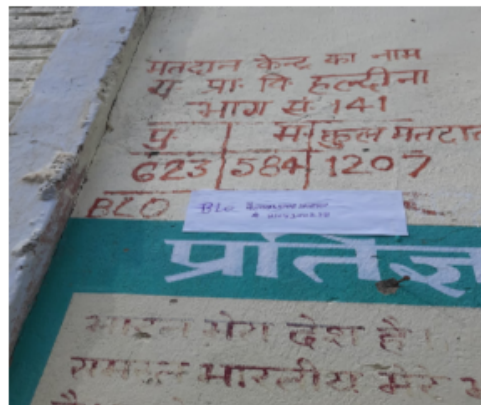 मतदान केन्द्र का नाम
रा पा वि हल्दीना
भाग सं 141
पु म कुल मतदात
623 584 1207
BLO BLO
प्रतिज्ञ
भारत मेरा देश है।
भारतीय मेरे